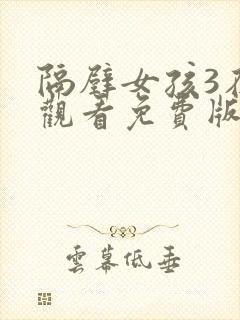 隔壁女孩3在
觀看免費版
雲幕低垂